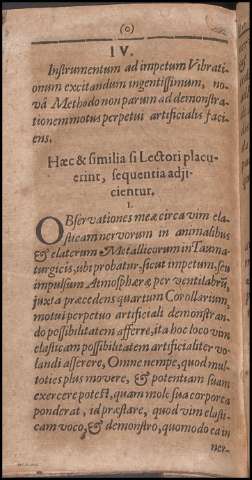 (o)
IV.
Instrumentum ad impetum Vibrati-
onum excitandum ingentissimum, no-
vâ Methodo non parum ad demonstra-
tionem motus perpetui artificialis faci-
ens.
Hæc & similia si Lectori placu-
erint, sequentia adji-
cientur.
I.
OBservationes meæ circa vim ela-
sticam nervorum in animalibus
& elaterum Metallicorum in Tauma-
turgicis, ubi probatur, sicut impetum, seu
impulsum Atmosphæræ per ventilabrū,
juxta præcedens quartum Corollarium,
motui perpetuo artificiali demonstran-
do possibilitatem afferre, ita hoc loco vim
elasticam possibilitatem artificialiter vo-
landi asserere, Omne nempe, quod mul-
toties plus movere, & potentiam suam
exercere potest, quam mole sua corporea
ponderat, id præstare, quod vim elasti-
cam voco, & demonstro, quomodo ea in
ner-